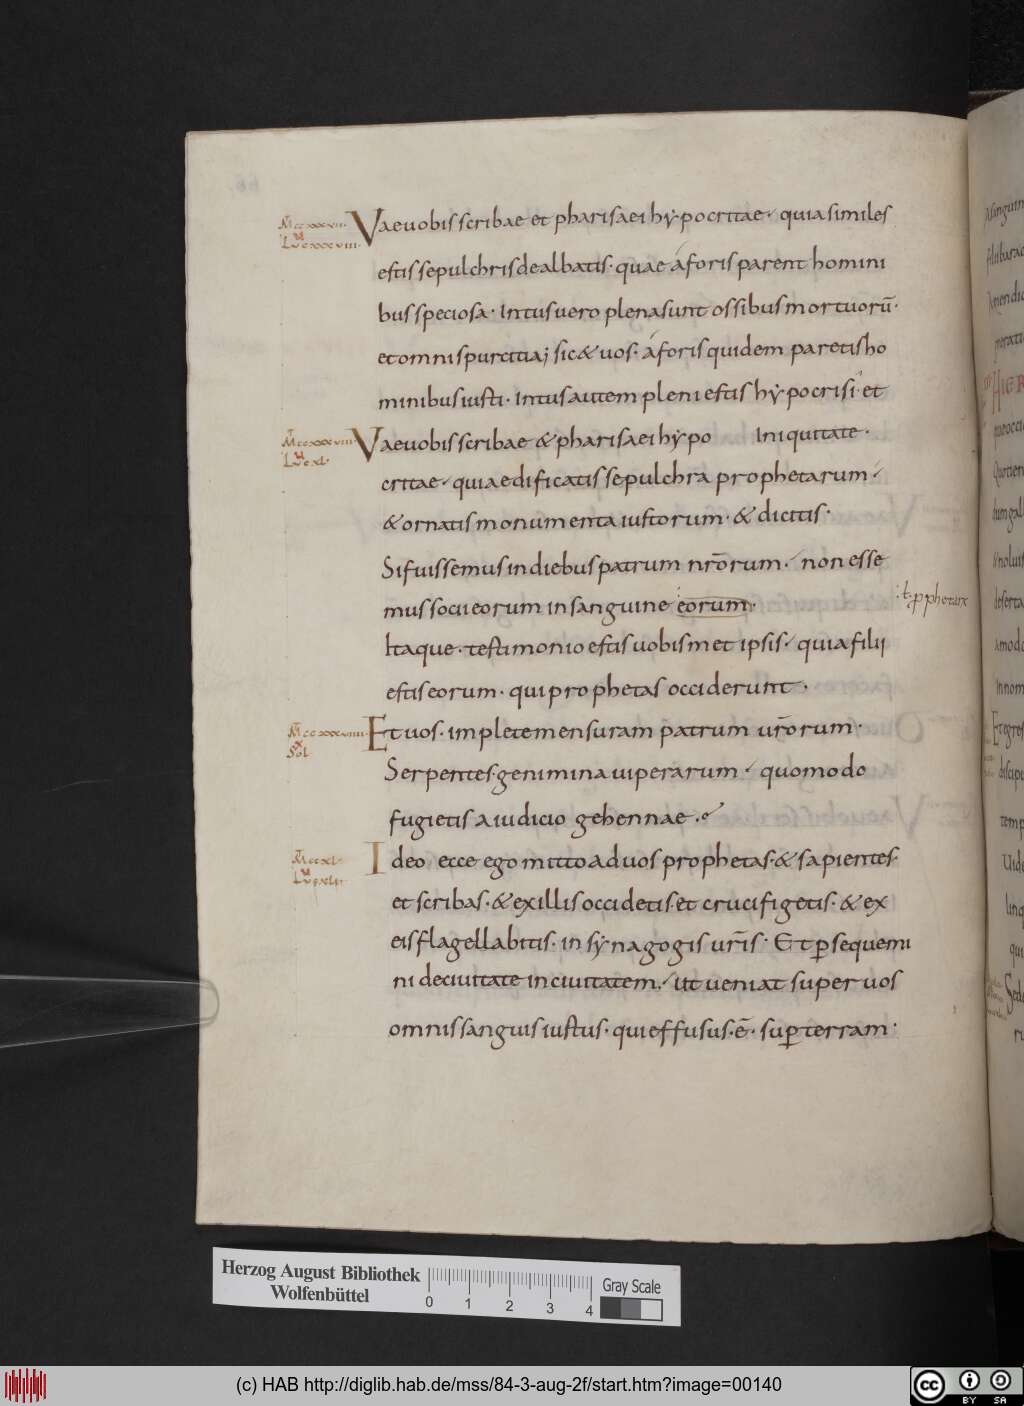 Vae uobis scribae et pharisaei hẏpocritae quia similes
estis sepulchris dealbatis· quae áforis parent homini
bus speciosa· Intus uero plena sunt ossibus mortuorū·
et omni spurcitia; sic & uos· áforis quidem paretis ho
minibus iusti· Intus autem pleni estis hẏpocrisi· et
Vae uobis scribae & pharisaei hẏpo Iniquitate·
critae quia edificatis sepulchra prophetarum
& ornatis monumenta iustorum· & dicitis·
Si fuissemus in diebus patrum nr̄orum· non esse
mus socii eorum in sanguine eorum·
ł pphetarū
Itaque· testimonio estis uobismet ipsis· quia filii
estis eorum· qui prophetas occiderunt·
Et uos· implete mensuram patrum ur̄orum·
Serpentes· genimina uiperarum quomodo
fugietis a iudicio gehennae·
Ideo ecce ego mitto ad uos prophetas· & sapientes·
et scribas· & ex illis occidetis· et crucifigetis· & ex
eis flagellabitis· in sẏnagogis ur̄is· Et ꝑsequemi
ni de ciuitate in ciuitatem· Ut ueniat super uos
omnis sanguis iustus· qui effusus· ē· suꝑ terram·
M̄ ccxxxvii·
Lū cxxxviii·
M̄ ccxxxviii·
Lū cxl·
M̄ ccxxxviiii·
Sol
M̄ ccxl·
Herzog August Bibliothek
Wolfenbüttel
0 1 2 3 4
Gray Scale
(c) HAB http://diglib.hab.de/mss/84-3-aug-2f/start.htm?image=00140
cc BY SA